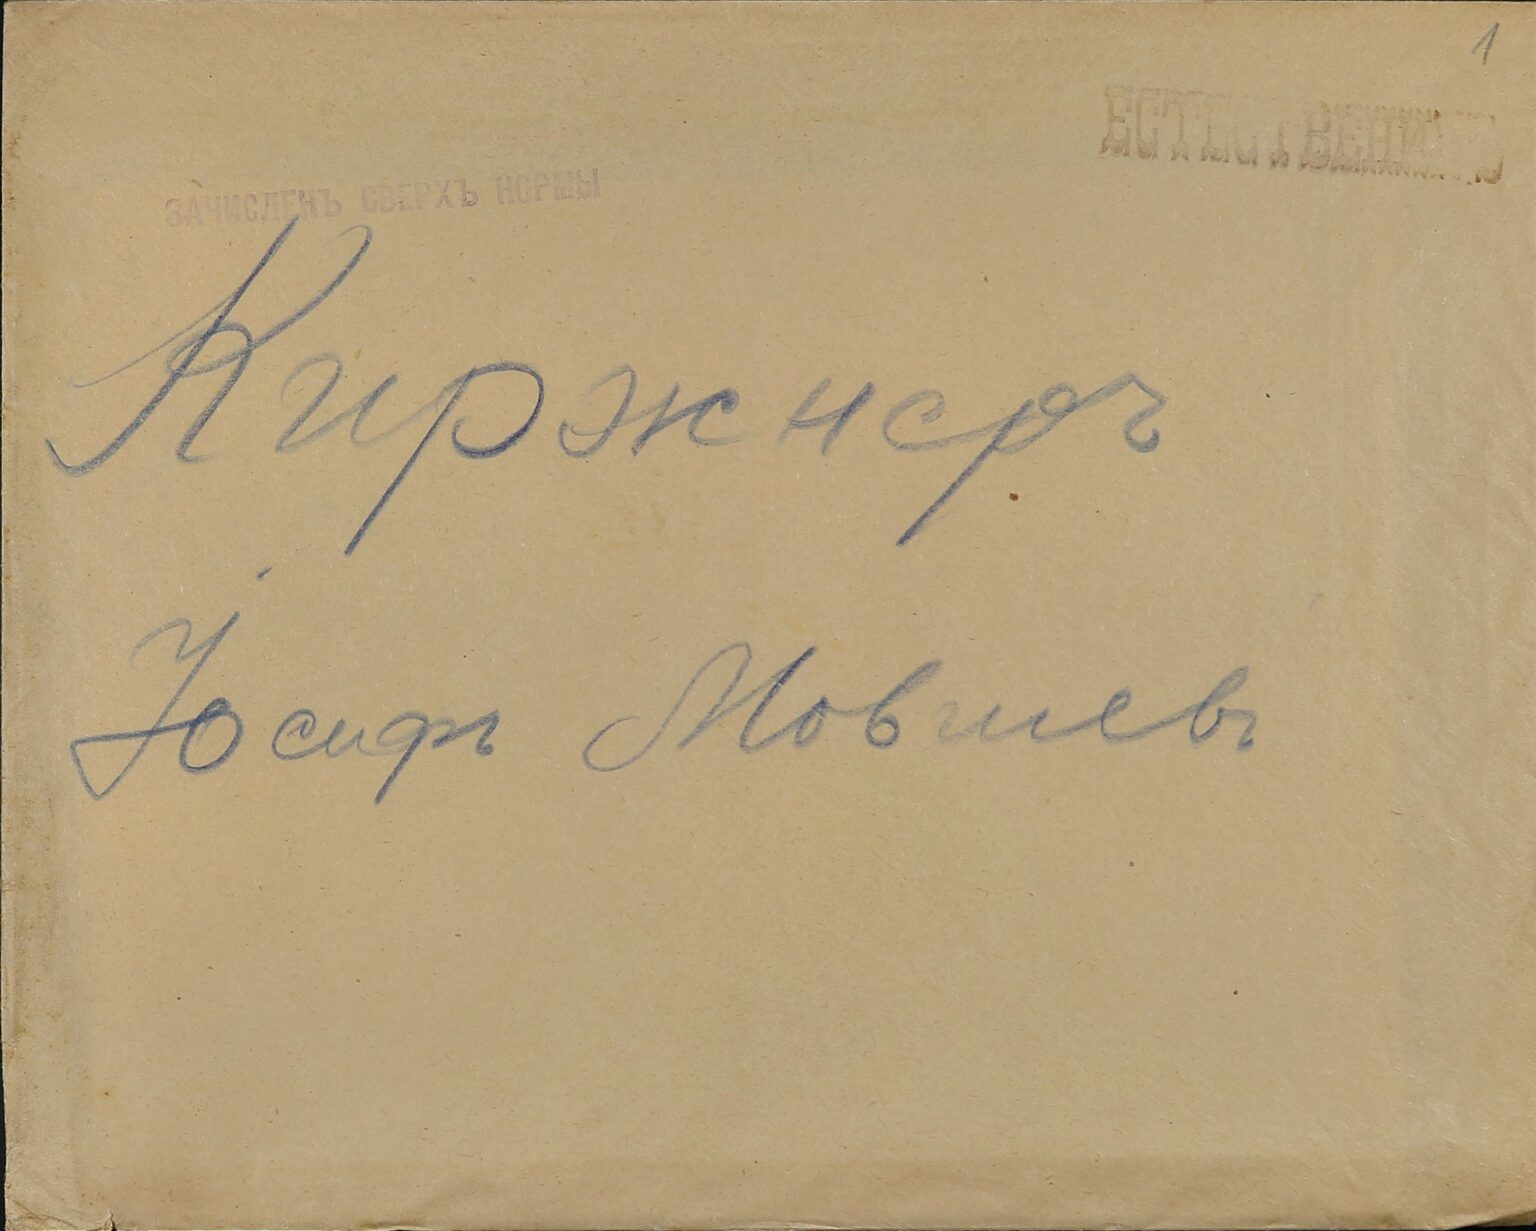 1
ЕСТЕСТВЕННИКЪ
ЗАЧИСЛЕНЪ СВЕРХЪ НОРМЫ
Киржнеръ
Іосифъ Мовшевъ